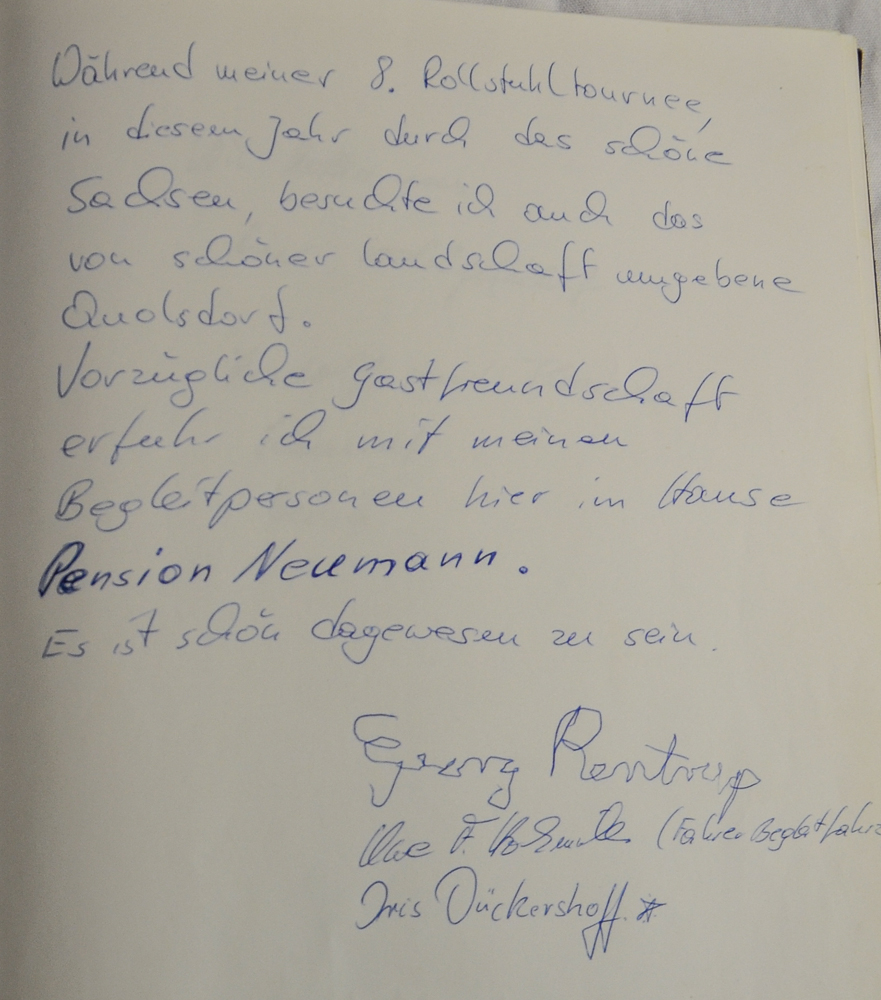 Während meiner 8. Rollstuhltournee,
in diesem Jahr durch das schöne
Sachsen, besuchte ich auch das
von schöner Landschaft umgebene
Quolsdorf.
Vorzügliche Gastfreundschaft
erfuhr ich mit meinen
Begleitpersonen hier im Hause
Pension Neumann.
Es ist schön dagewesen zu sein.
Georg Rentrup
Uwe F. (Fahrer Begleitfahrz
Iris Dückershoff